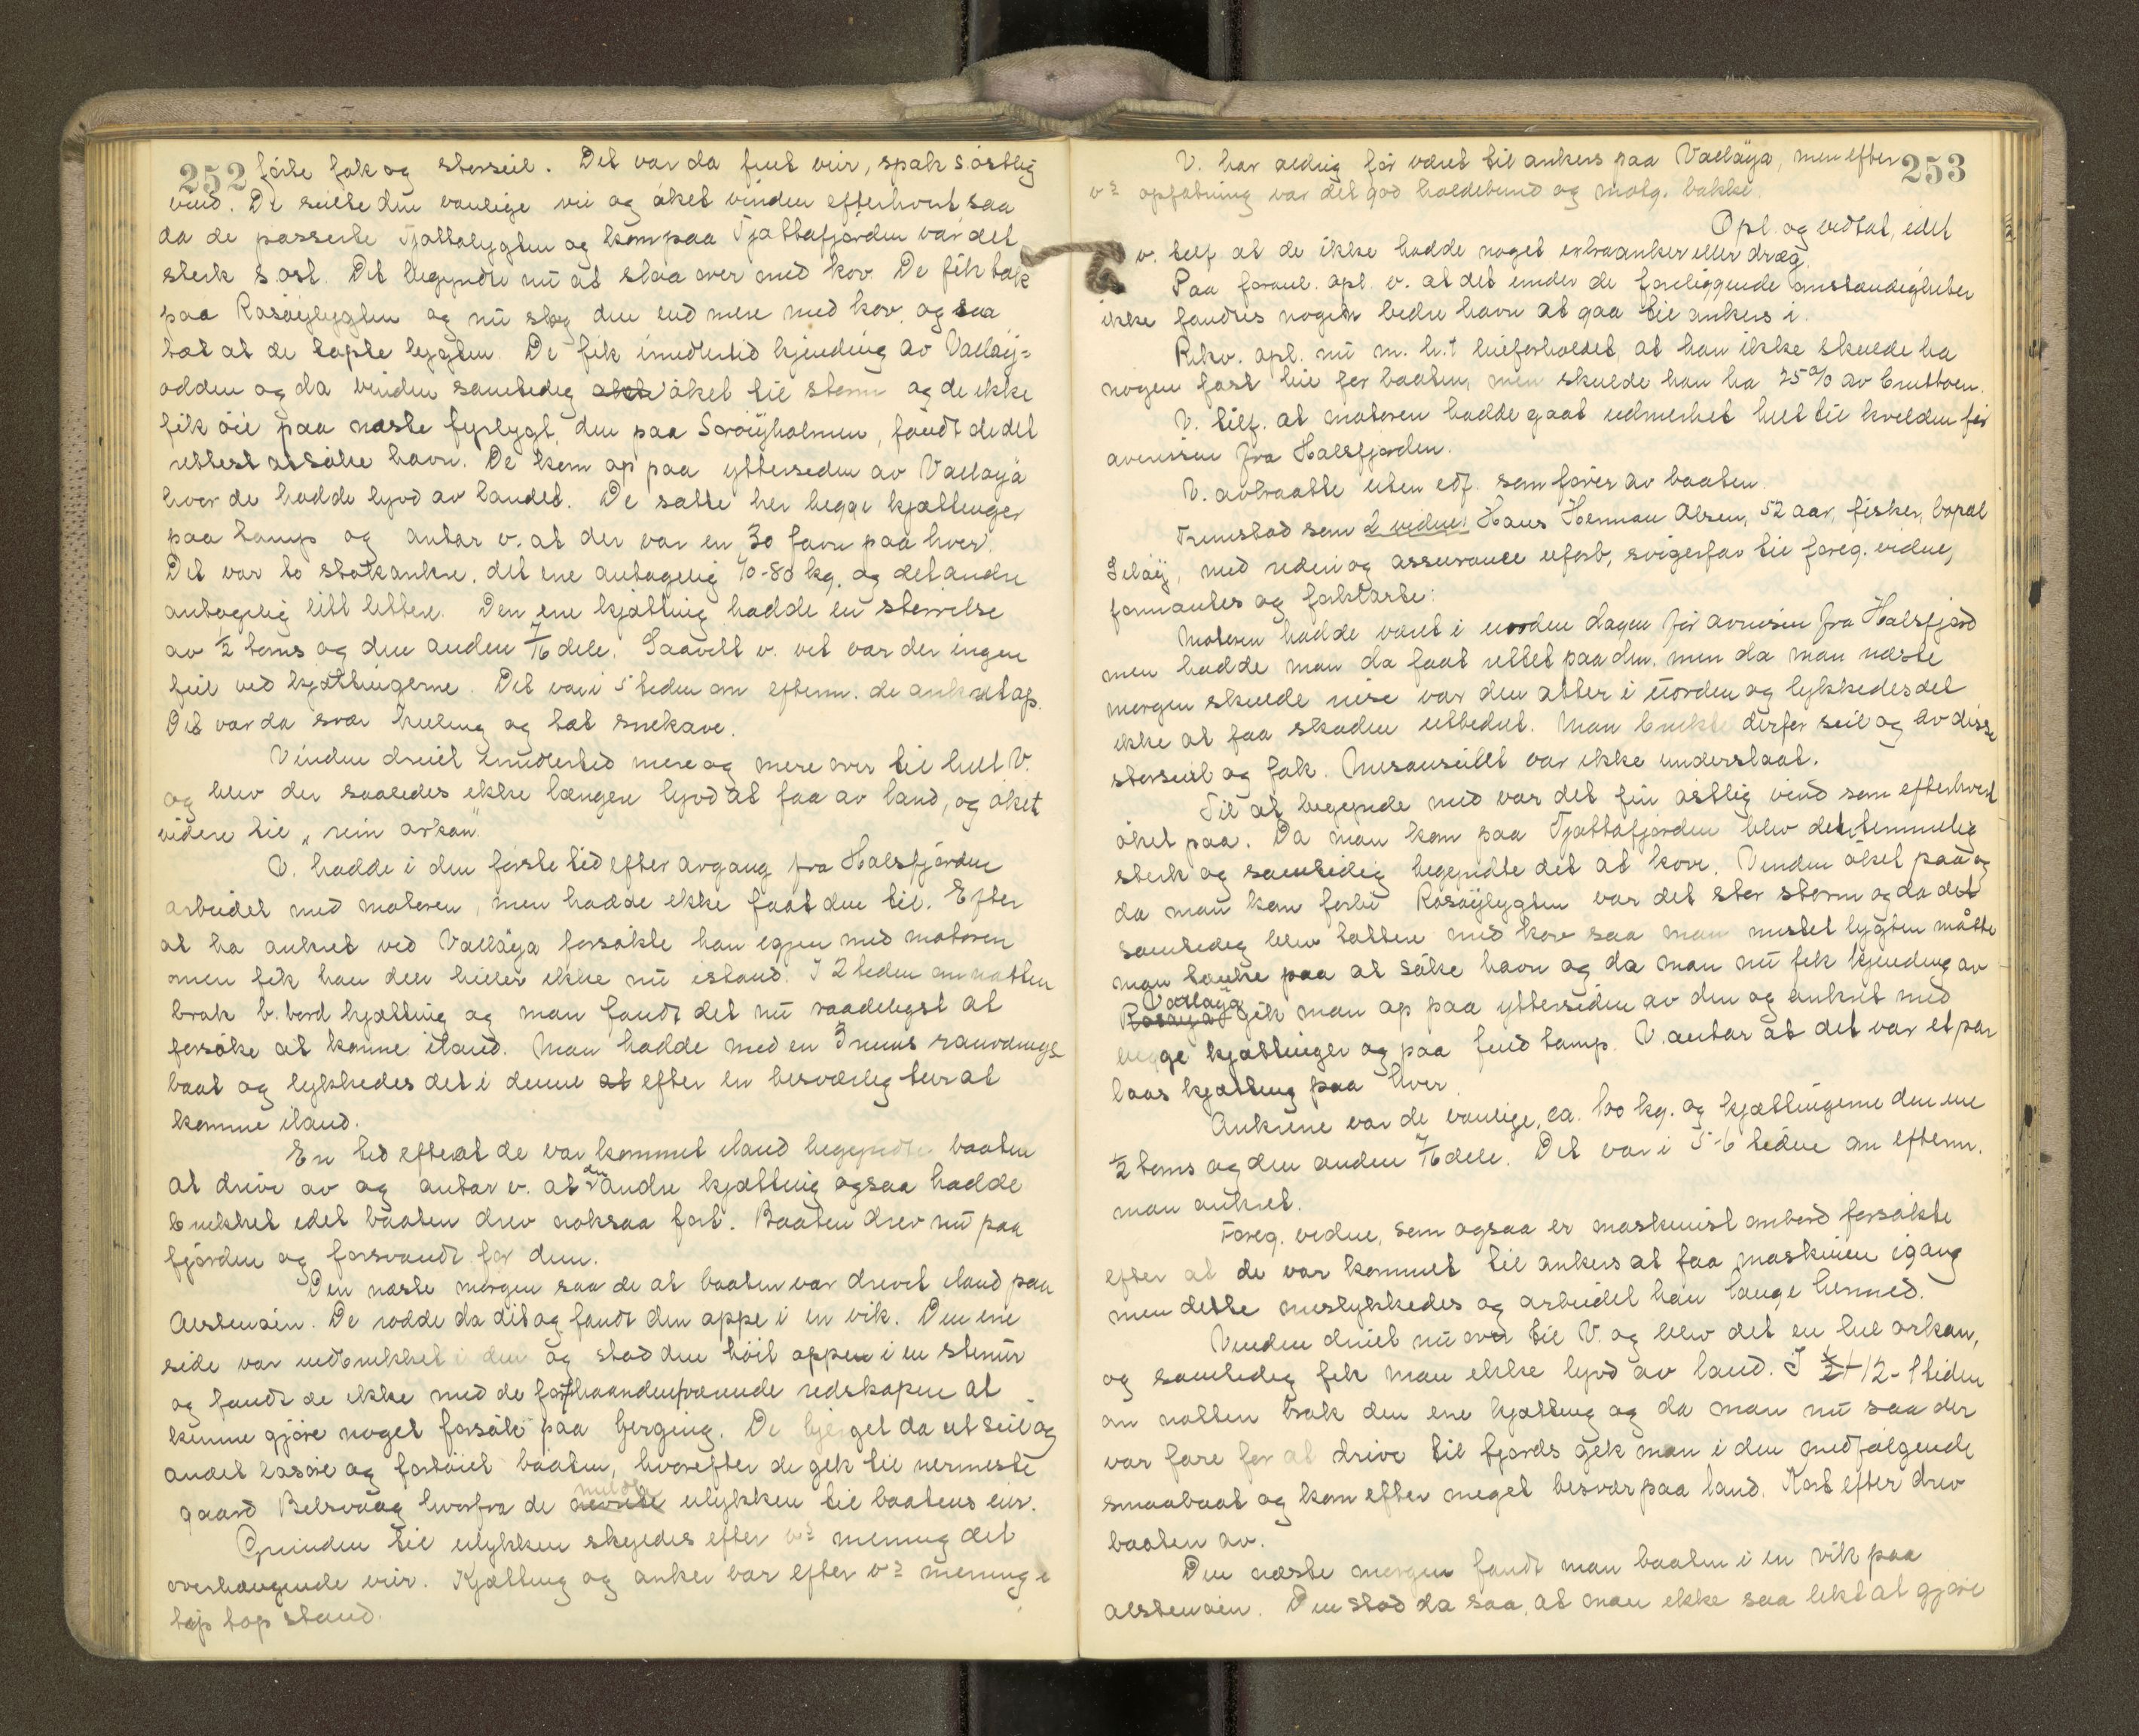 252
förte fok og storseil. Det var da fint veir, spak s.östlig
vind. De seilte den vanlige vei og öket vinden efterhvert saa
da de passerte Tjöttalygten og kom paa Tjöttafjorden var det
sterk s.ost. Det begyndte nu at slaa over med kov. De fik tak
paa Rosöylygten og nu slog den end mere med kov. og saa
tæt at de tapte lygten. De fik imidlertid kjending av Vallöy-
odden og da vinden samtidig öket til storm og de ikke
fik öie paa næste fyrlygt, den paa Soröyholmen, fandt de det
rettest at söke havn. De kom op paa yttersiden av Vallöya
hvor de hadde lyvd av landet. De satte her begge kjættinger
paa tamp og antar v. at der var en 30 favn paa hver.
Det var to stokankre, det ene antagelig 70-80 kg. og det andre
antagelig litt lettere. Den ene kjætting hadde en störrelse
av 1/2 toms og den anden 7/16 dele. Saavitt v. vet var der ingen
feil ved kjættingerne. Det var i 5 tiden om efterm. de ankret op.
Det var da svær kuling og tæt snekave.
Vinden dreiet imidlertid mere og mere over til helt V.
og blev der saaledes ikke længere lyvd at faa av land, og öket
videre til „rein orkan".
V. hadde i den förste tid efter avgang fra Halsfjorden
arbeidet med motoren, men hadde ikke faat den til. Efter
at ha ankret ved Vallöya forsökte han igjen med motoren
men fik han den heller ikke nu istand. I 2 tiden om natten
brak b.bord kjætting og man fandt det nu raadeligst at
forsöke at komme iland. Man hadde med en 3 rums
baat og lykkedes det i denne at efter en besværlig tur at
komme iland.
En tid efterat de var kommet iland begyndte baaten
at drive av og antar v. at den andre kjætting ogsaa hadde
brukket idet baaten drev noksaa fort. Baaten drev nu paa
fjorden og forsvandt for dem.
Den næste morgen saa de at baaten var drevet iland paa
Alstenöen. De rodde da dit og fandt den oppe i en vik. Den ene
side var indbrukket i den og stod den höit oppe i en stenur
og fandt de ikke med de forhaandenværende redskaper at
kunne gjöre noget forsök paa berging. De bjerget da ut seil og
andet lösöre og fortöiet baaten, hvorefter de gik til nermeste
gaard Belsvaag hvorfra de meldte ulykken til baatens eier.
Grunden til ulykken skyldes efter v's mening det
overhængende veir. Kjætting og anker var efter v's mening i
tip top stand.
253
V. har aldrig för været til ankers paa Vallöya, men efter
v's opfatning var det god holdebund og motg. bakke.
Opl. og vedtat, idet
v. tilf. at de ikke hadde noget extraanker eller dræg.
Paa foranl. opl. v. at det under de foreliggende omstændigheter
ikke fandtes nogen bedre havn at gaa til ankers i.
Rekv. opl. nu m.h.t. leieforholdet, at han ikke skulde ha
nogen fast leie for baaten, men skulde han ha 25 % av bruttoen.
V. tilf. at motoren hadde gaat udmerket helt til kvelden för
avreisen fra Halsfjorden.
V. avtraatte uten edf. som förer av baaten.
Fremstod som 2 vidne: Hans Herman Olsen, 52 aar, fisker, bopæl
med rederi og assurance uforb, svigerfar til foreg. vidne,
formantes og forklarte:
Motoren hadde været i uorden dagen för avreisen fra Halsfjord
men hadde man da faat rettet paa den, men da man næste
morgen skulde reise var den atter i uorden og lykkedes det
ikke at faa skaden utbedret. Man brukte derfor seil og av disse
storseil og fok. Mesanseilet var ikke understaat.
Til at begynde med var det fin östlig vind som efterhvert
öket paa. Da man kom paa Tjøttafjorden blev det temmelig
sterk og samtidig begyndte det at kove. Vinden öket paa og
da man kom forbi Rosöylygten var det stor storm og da det
samtidig blev tættere med kov saa man mistet lygten måtte
man tænke paa at söke havn og da man nu fik kjending av
Rosöya Vallöya gik man op paa yttersiden av den og ankret med
begge kjættinger og paa fuld tamp. V. antar at det var et par
laas kjætting paa hver.
Ankrene var de vanlige, ca. 100 kg. og kjættingerne den ene
1/2 toms og den anden 7/16 dele. Det var i 5-6 tiden om efterm.
man ankret.
Foreg. vidne, som ogsaa er maskinist ombord forsökte
efter at de var kommet til ankers at faa maskinen igang
men dette mislykkedes og arbeidet han længe hermed.
Vinden dreiet nu over til V. og blev det en hel orkan,
og samtidig fik man ikke lyvd av land. I 12-1 tiden
om natten brak den ene kjætting og da man nu saa der
var fare for at drive til fjords gik man i den medfölgende
smaabaat og kom efter meget besvær paa land. Kort efter drev
baaten av.
Den næste morgen fandt man baaten i en vik paa
Alstenöen. Den stod da saa, at man ikke saa likt at gjöre